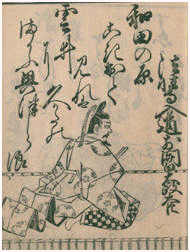 法性寺入道前関白太政大臣
和田の原
こき出て
見れは
久かたの
雲井
に
まかふ奥津しら波